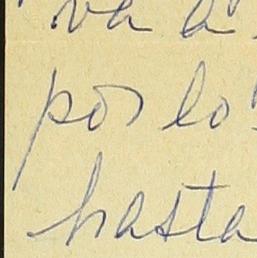 va a
por lo
hasta